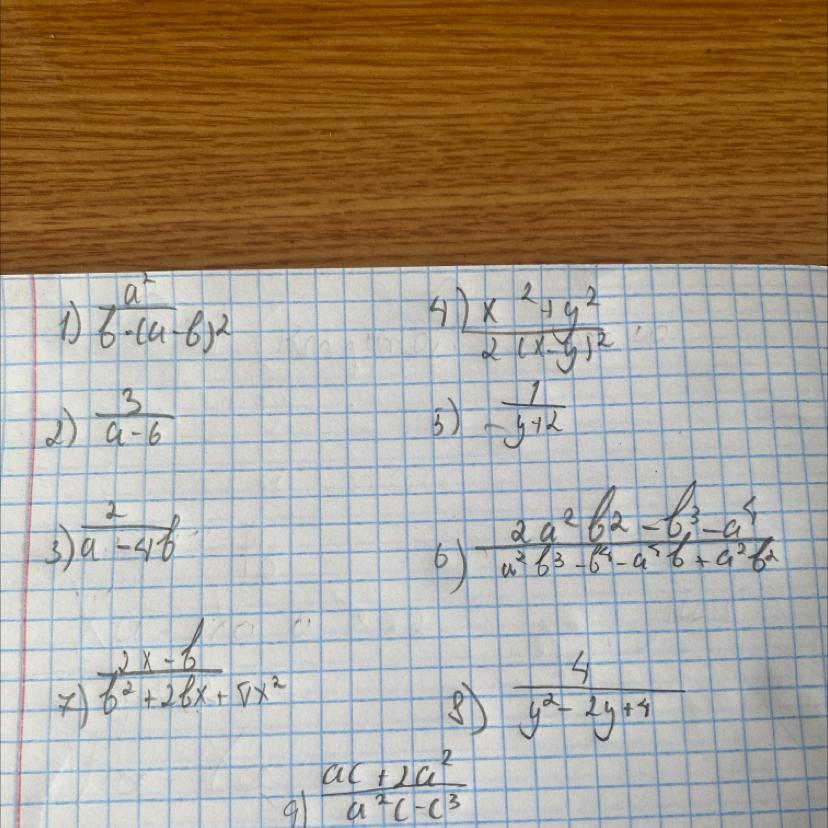 1) a²/(b·(a-b)²)
4) (x²+y²)/(2(x-y)²)
2) 3/(a-6)
5) -1/(y+2)
3) 2/(a-4b)
6) (2a²b²-b³-a⁴)/(a²b³-b⁴-a⁴b+a²b²)
7) (2x-b)/(b²+2bx+4x²)
8) 4/(y²-2y+4)
9) (ac+2a²)/(a²c-c³)